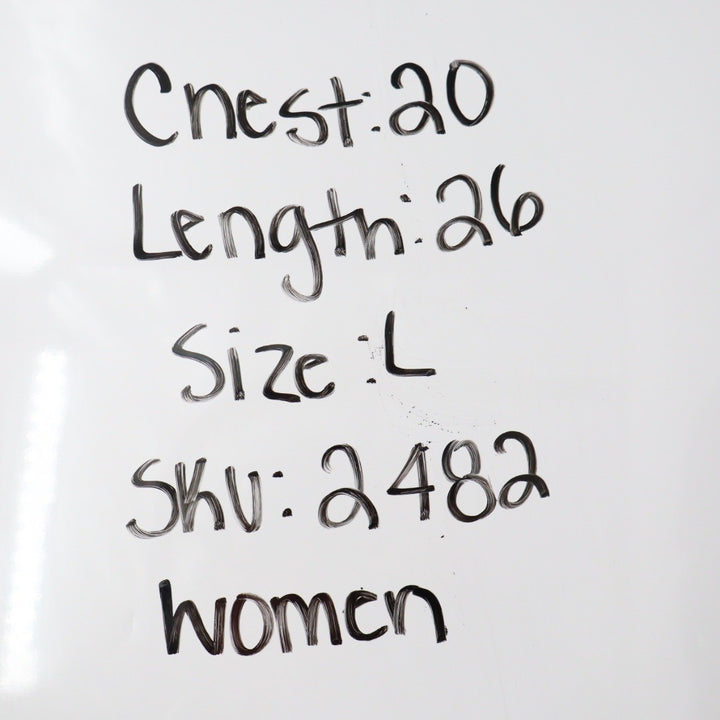 Chest:20
Length:26
Size:L
SKU:2482
Women